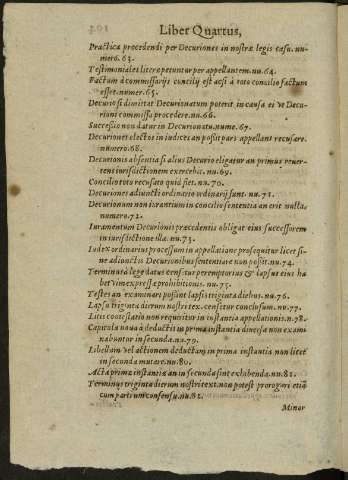 Liber Quartus,
Practica procedendi per Decuriones in nostræ legis casu. nu-
mero. 63.
Testimoniales literæ petuntur per appellantem. nu. 64.
Factum à commissarijs concilij est acsi à toto concilio factum
esset. numer. 65.
Decurio si dimittat Decurionatum poterit in causa ei vt Decu-
rioni commissa procedere. nu. 66.
Successio non datur in Decurionatu. nume. 67.
Decuriones electos in iudices an possit pars appellant recusare.
numero. 68.
Decurionis absentia si alius Decurio eligatur an primus reuer-
tens iurisdictionem exercebit. nu. 69.
Concilio toto recusato quid fiet. nu. 70.
Decuriones adiuncti ordinario ordinarij sunt. nu. 71.
Decurionum non iurantium in concilio sententia an erit nulla.
numero. 72.
Iuramentum Decurionis præcedentis obligat eius successorem
in iurisdictione illa. nu. 73.
Iudex ordinarius processum in appellatione prosequitur licet si-
ne adiunctis Decurionibus sententiare non possit. nu. 74.
Terminus à lege datus censetur peremptorius & lapsus eius ha-
bet vim expressæ prohibitionis. nu. 75.
Testes an examinari possint lapsis triginta diebus. nu. 76.
Lapsu triginta dierum nostri tex. censetur conclusum. nu. 77.
Litis contestatio non requiritur in instantia appellationis. n. 78.
Capitula noua à deductis in prima instantia diuersa non exami-
nabuntur in secunda. nu. 79.
Libellum vel actionem deductam in prima instantia non licet
in secunda mutare. nu. 80.
Acta primæ instantiæ an in secunda sint exhibenda. nu. 81.
Terminus triginta dierum nostri text. non potest prorogari etiã
cum partium consensu. nu. 82.
Minor